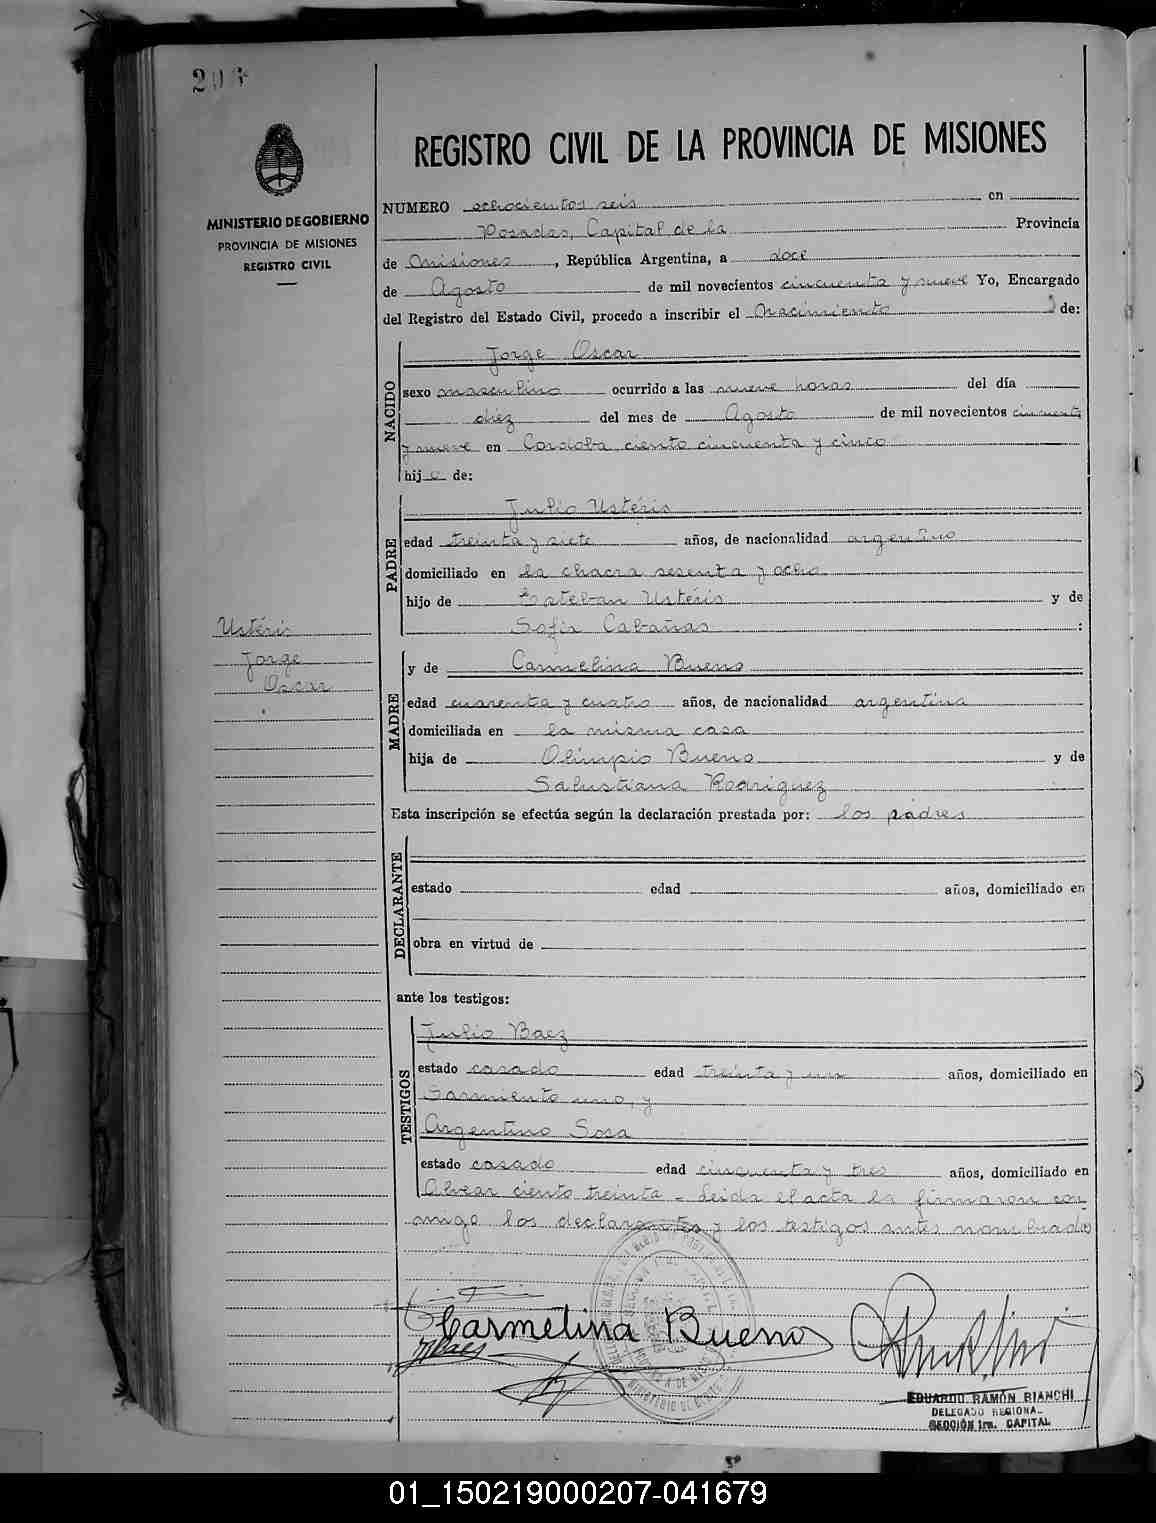 206
MINISTERIO DE GOBIERNO
PROVINCIA DE MISIONES
REGISTRO CIVIL
REGISTRO CIVIL DE LA PROVINCIA DE MISIONES
NUMERO ochocientos seis en
Posadas, Capital de la Provincia
de Misiones, República Argentina, a doce
de Agosto de mil novecientos cincuenta y nueve Yo, Encargado
del Registro del Estado Civil, procedo a inscribir el Nacimiento de:
NACIDO
Jorge Oscar
sexo masculino ocurrido a las nueve horas del día
diez del mes de Agosto de mil novecientos cincuenta
y nueve en Cordoba ciento cincuenta y cinco
hijo de:
PADRE
Julio Ustéris
edad treinta y siete años, de nacionalidad argentino
domiciliado en la chacra sesenta y ocho
hijo de Esteban Ustéris y de
Sofia Cabañas :
Ustéris
Jorge
Oscar
MADRE
y de Carmelina Bueno
edad cuarenta y cuatro años, de nacionalidad argentina
domiciliada en la misma casa
hija de Olimpio Bueno y de
Salustiana Rodriguez
Esta inscripción se efectúa según la declaración prestada por: los padres
DECLARANTE
estado edad años, domiciliado en
obra en virtud de
ante los testigos:
TESTIGOS
Julio Baez
estado casado edad treinta y un años, domiciliado en
Sarmiento uno, y
Argentino Sosa
estado casado edad cincuenta y tres años, domiciliado en
Alvear ciento treinta - Leida el acta la firmaron con
migo los declarantes y los testigos antes nombrados
Carmelina Bueno
JBaes
EDUARDO RAMÓN BIANCHI
DELEGADO REGIONAL
SECCIÓN 1ra. CAPITAL
01_150219000207-041679